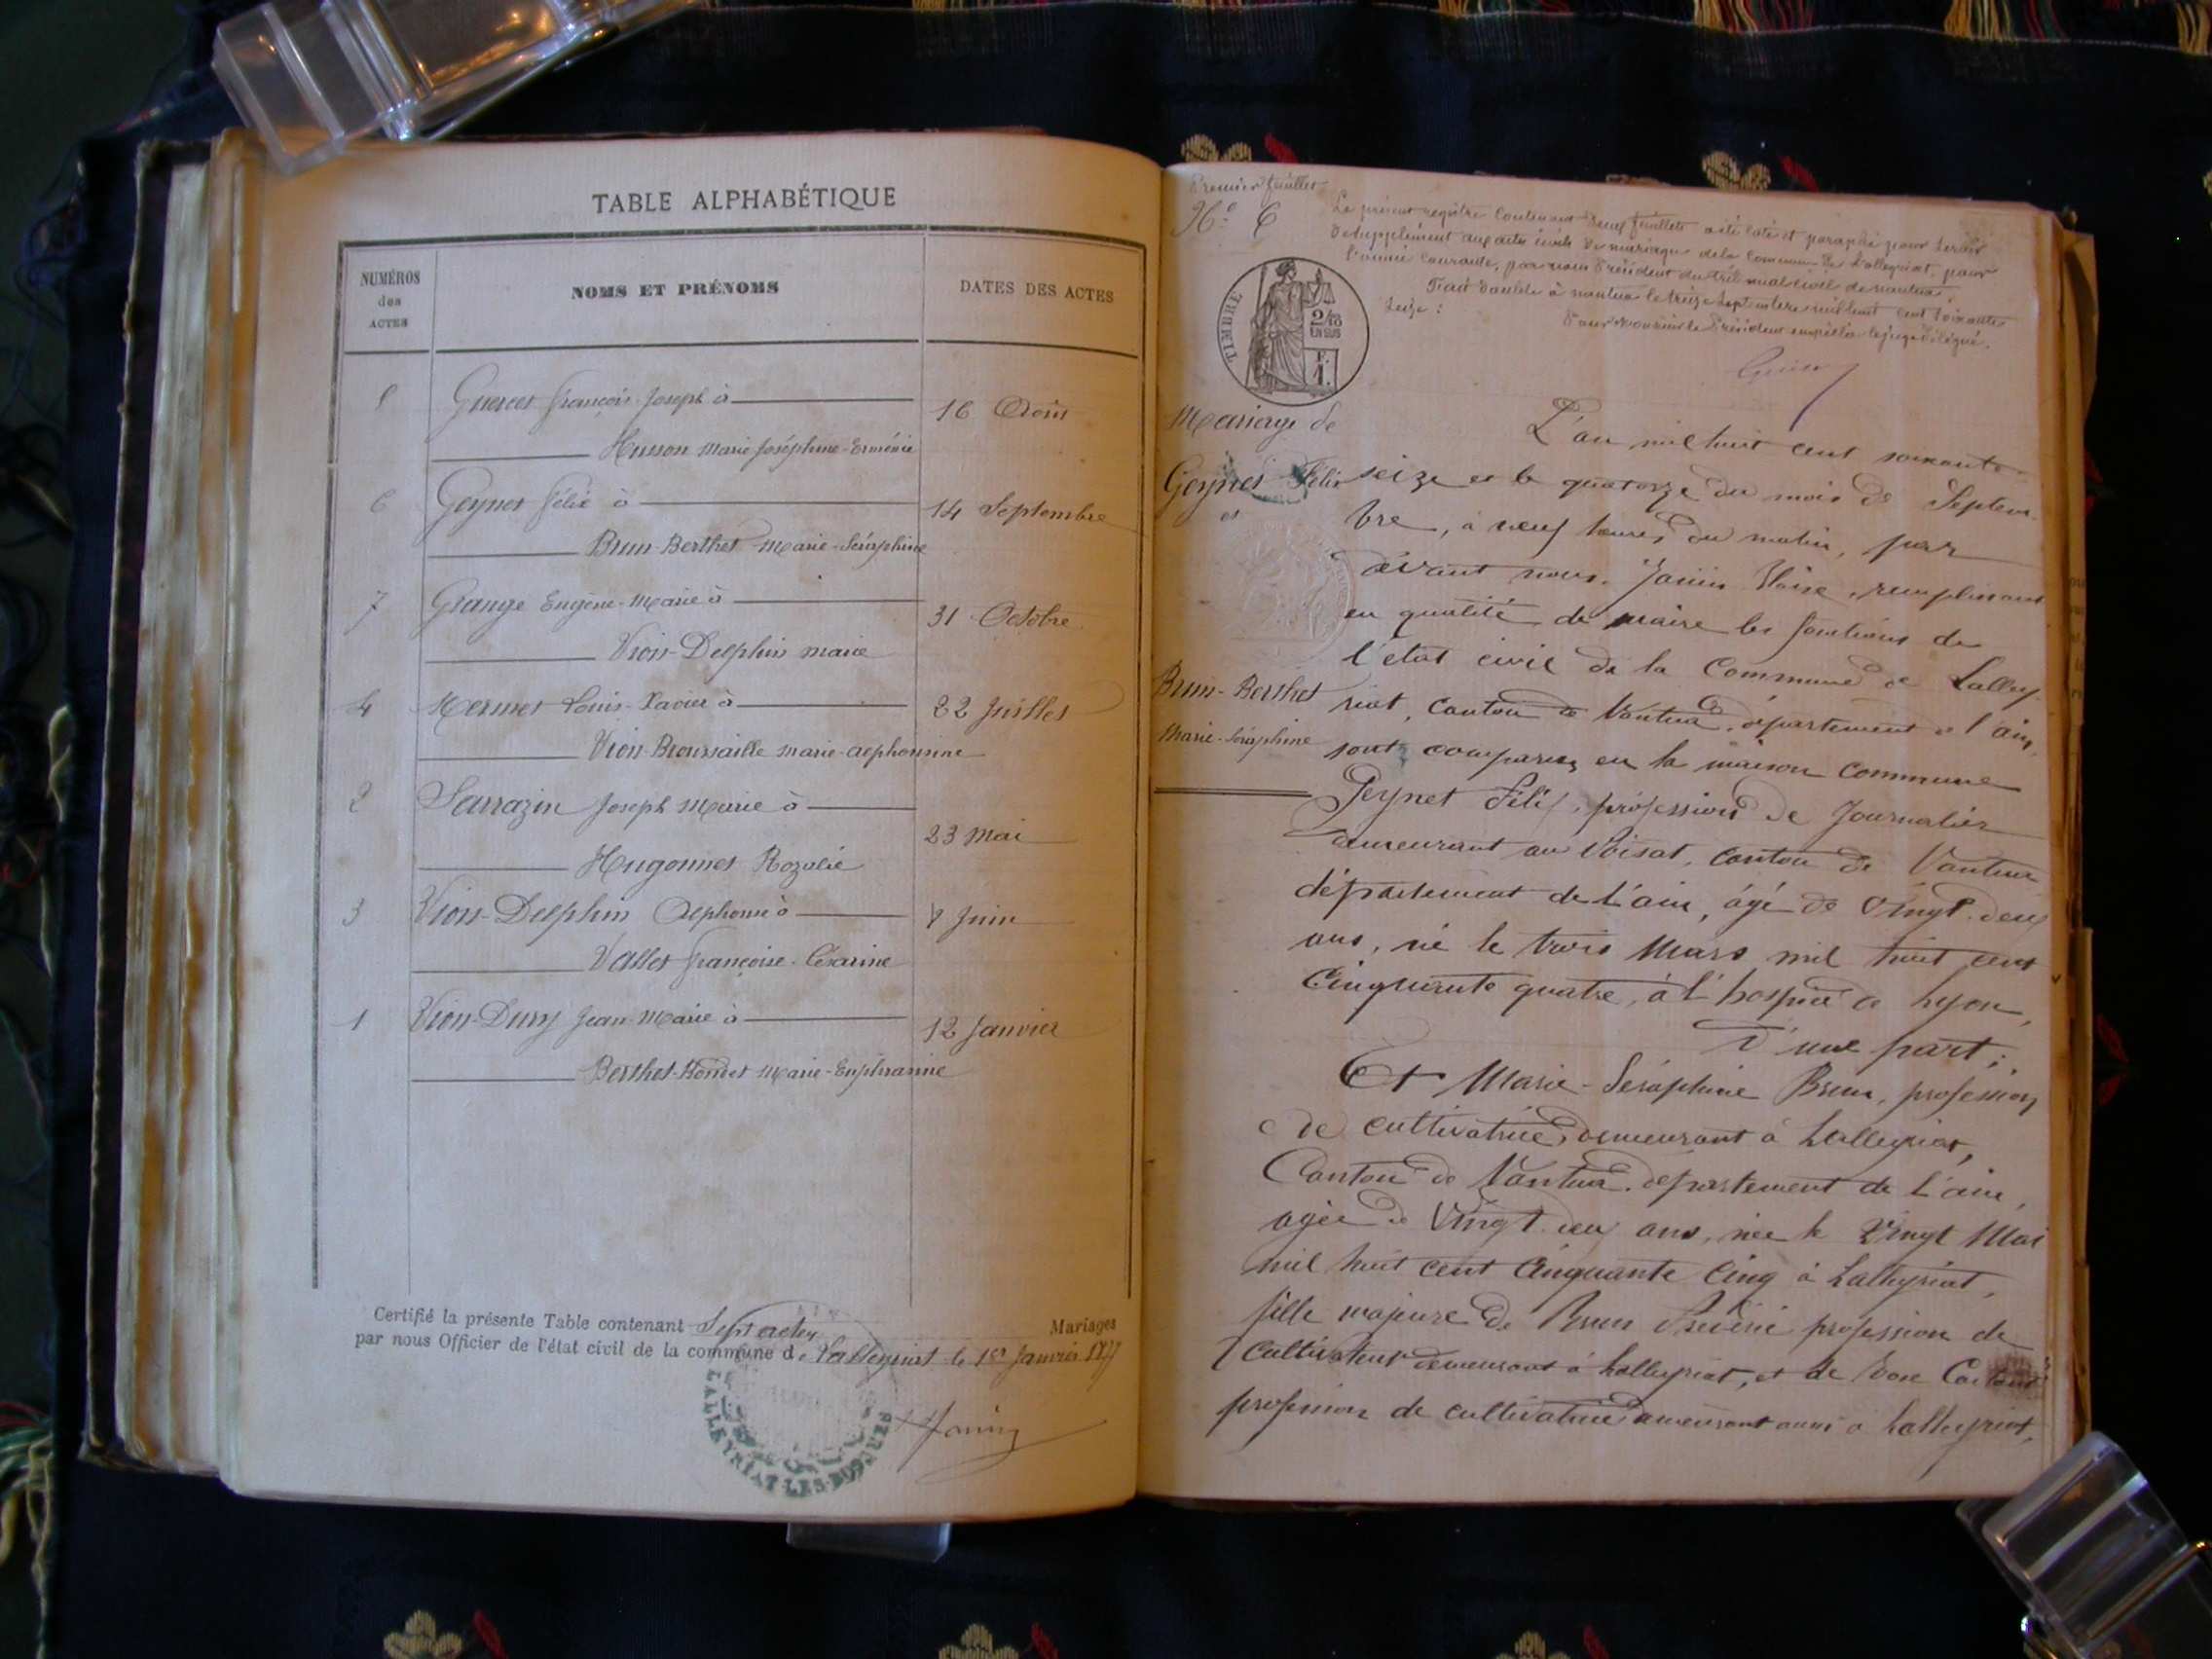 TABLE ALPHABÉTIQUE
NUMÉROS
des
ACTES
NOMS ET PRÉNOMS
DATES DES ACTES
François-Joseph à
16 Août
Husson Marie Joséphine-Erménie
6
Geynet Félix à
14 Septembre
Brun-Berthet Marie-Séraphine
7
Grange Eugène-Marie à
31 Octobre
Vion-Delphin Marie
4
Mermet Louis-Xavier à
22 Juillet
Vion-Broussaille Marie-Alphonsine
2
Sarrazin Joseph Marie à
23 Mai
Hugonnet Rozalie
3
Vion-Delphin Alphonse à
Juin
Vallet Françoise-Césarine
1
Vion-Dury Jean-Marie à
12 Janvier
Marie-Euphrasine
Certifié la présente Table contenant Sept actes Mariages
par nous Officier de l'état civil de la commune de Lalleyriat le 1er Janvier 1877
Janin
LALLEYRIAT-LES-BOSQUES
Premier feuillet
No 6
Le présent registre contenant deux feuillets a été coté et paraphé pour servir
de supplément aux actes civils de mariage de la commune de Lalleyriat, pour
l'année courante, par nous Président du tribunal civil de nantua.
Fait double à nantua le treize Septembre mil huit cent soixante
seize :
Pour Monsieur le Président empêché le juge délégué.
TIMBRE
2/10
EN SUS
F.
1.
Mariage de
Geynet Félix
et
Brun-Berthet
Marie-Séraphine
L'an mil huit cent soixante
seize et le quatorze du mois de Septem-
bre, à neuf heures du matin, par
devant nous Janin Blaise, remplissant
en qualité de maire les fonctions de
l'état civil de la Commune de Lalley-
riat, canton de Nantua, département de l'ain,
sont comparus en la maison commune
Geynet Félix, profession de Journalier
demeurant au Poizat, canton de Nantua
département de l'ain, âgé de vingt-deux
ans, né le trois Mars mil huit cent
cinquante quatre, à l'hospice de Lyon,
D'une part ;
Et Marie-Séraphine Brun, profession
de cultivatrice, demeurant à Lalleyriat,
Canton de Nantua, département de l'ain,
agée de vingt-deux ans, née le vingt Mai
mil huit cent cinquante cinq à Lalleyriat,
fille majeure de Brun profession de
cultivateur demeurant à Lalleyriat, et de
profession de cultivatrice demeurant aussi à Lalleyriat,